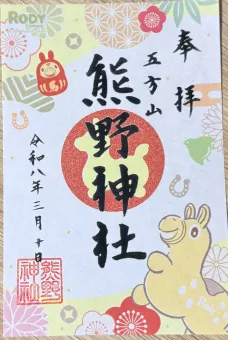 RODY
奉拝
五方山
熊野神社
令和八年三月十日
熊野
神社
Rody